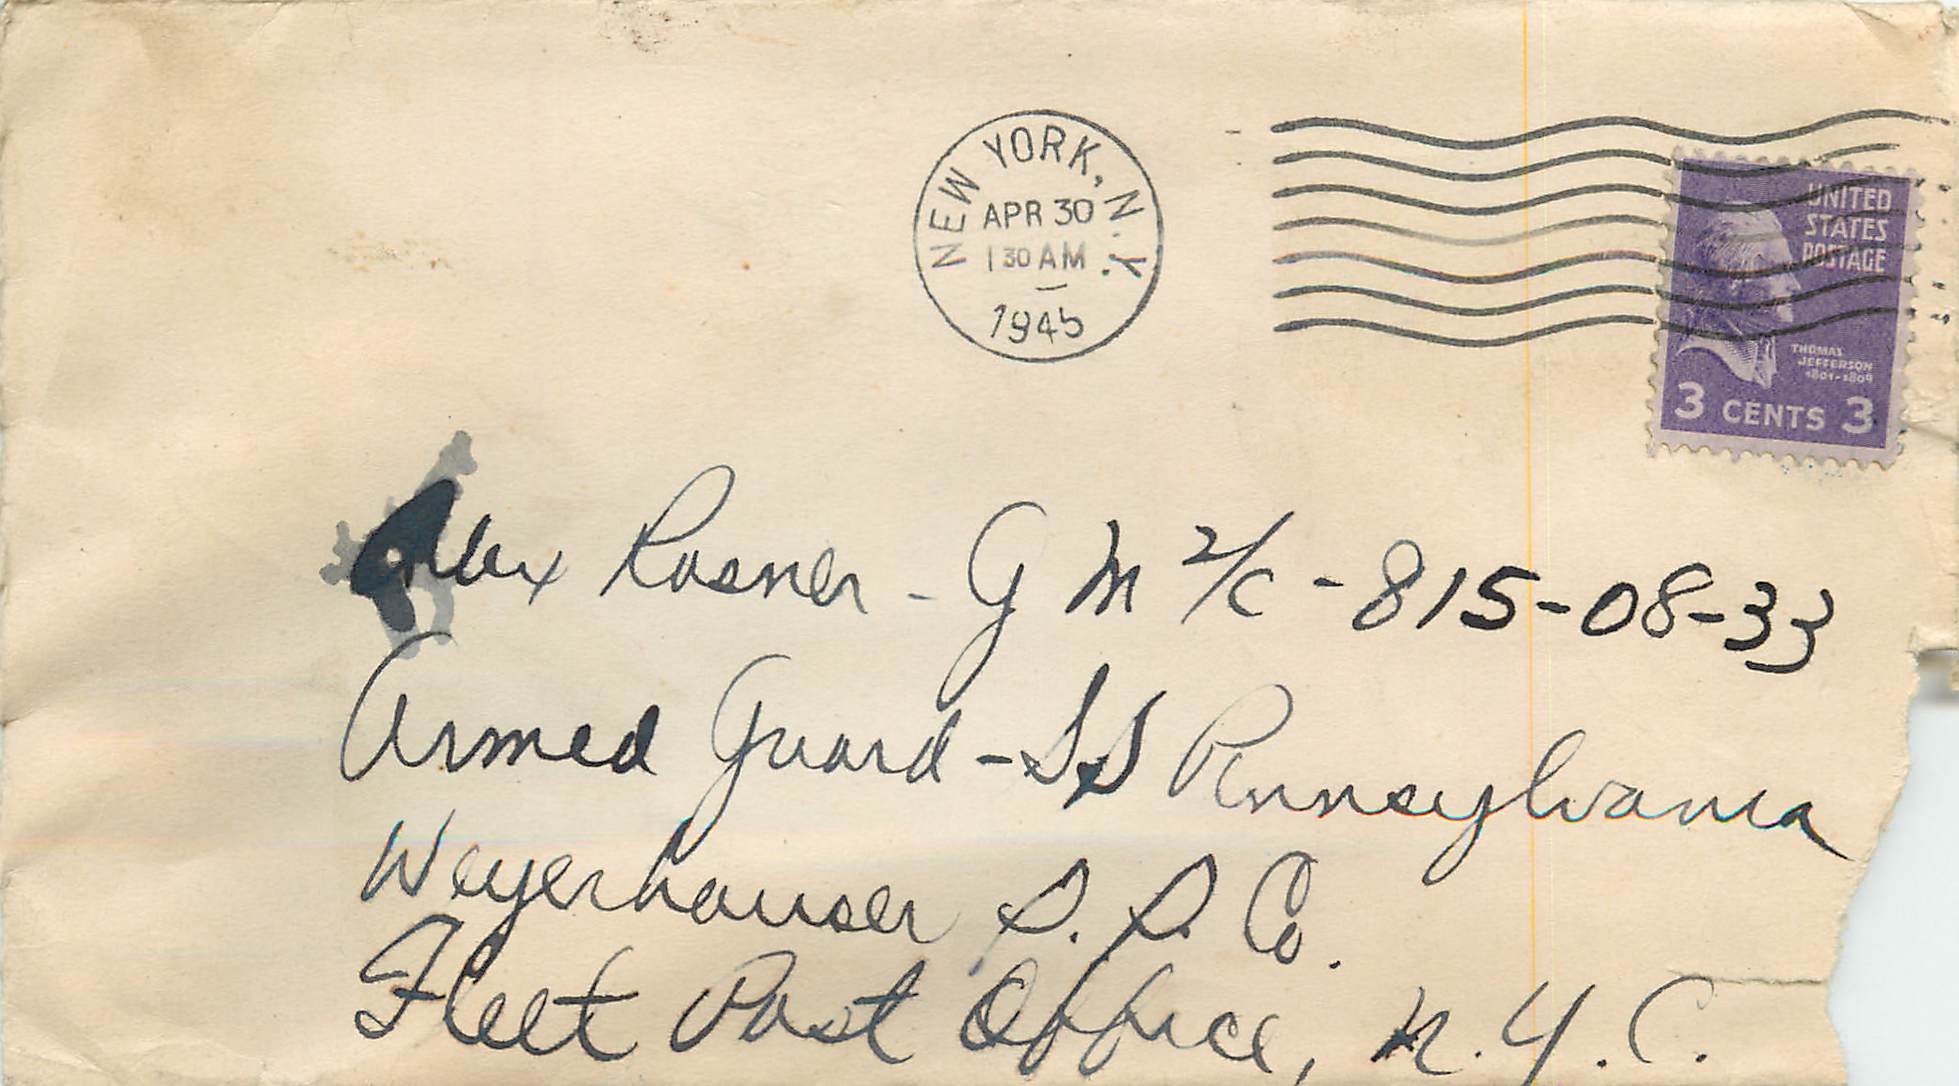 NEW YORK, N.Y.
APR 30
1 30 AM
1945
UNITED
STATES
POSTAGE
THOMAS
JEFFERSON
1801-1809
3 CENTS 3
Alex Rosner - GM 2/C - 815-08-33
Armed Guard - SS Pennsylvania
Weyerhauser S.S. Co.
Fleet Post Office, N.Y.C.